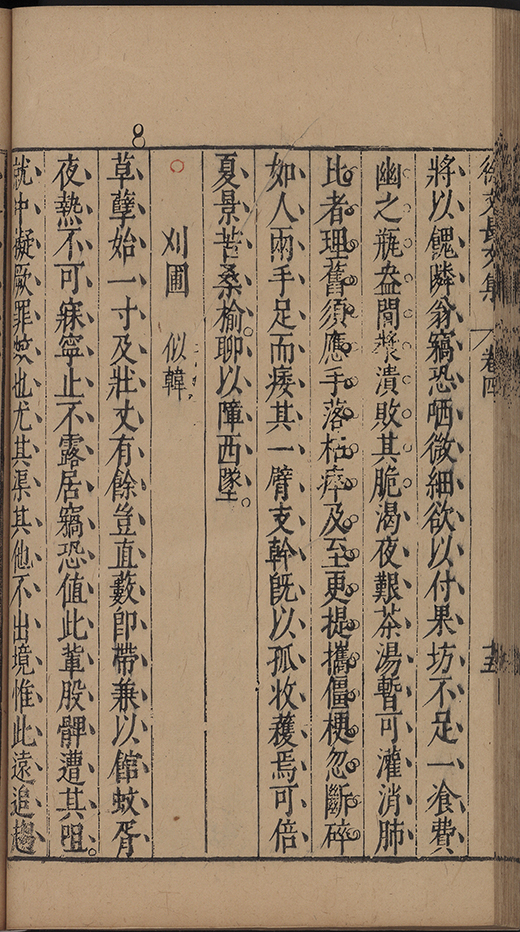 徐文長文集 卷四 十五
將以餽隣翁竊恐哂微細欲以付果坊不足一飡費
幽之瓶盎間漿潰敗其脆渴夜艱茶湯暫可灌消肺
比者理舊須應手落枯瘁及至更提攜僵梗忽斷碎
如人兩手足而痿其一臂支幹旣以孤收穫焉可倍
夏景苦桑榆聊以障西墜
刈圃 似韓
草孽始一寸及壯丈有餘豈直藪卽帶兼以館蚊胥
夜熱不可寐寧止不露居竊恐值此輩股髀遭其咀
就中凝厥罪 也尤其渠其他不出境惟此遠追趨
8